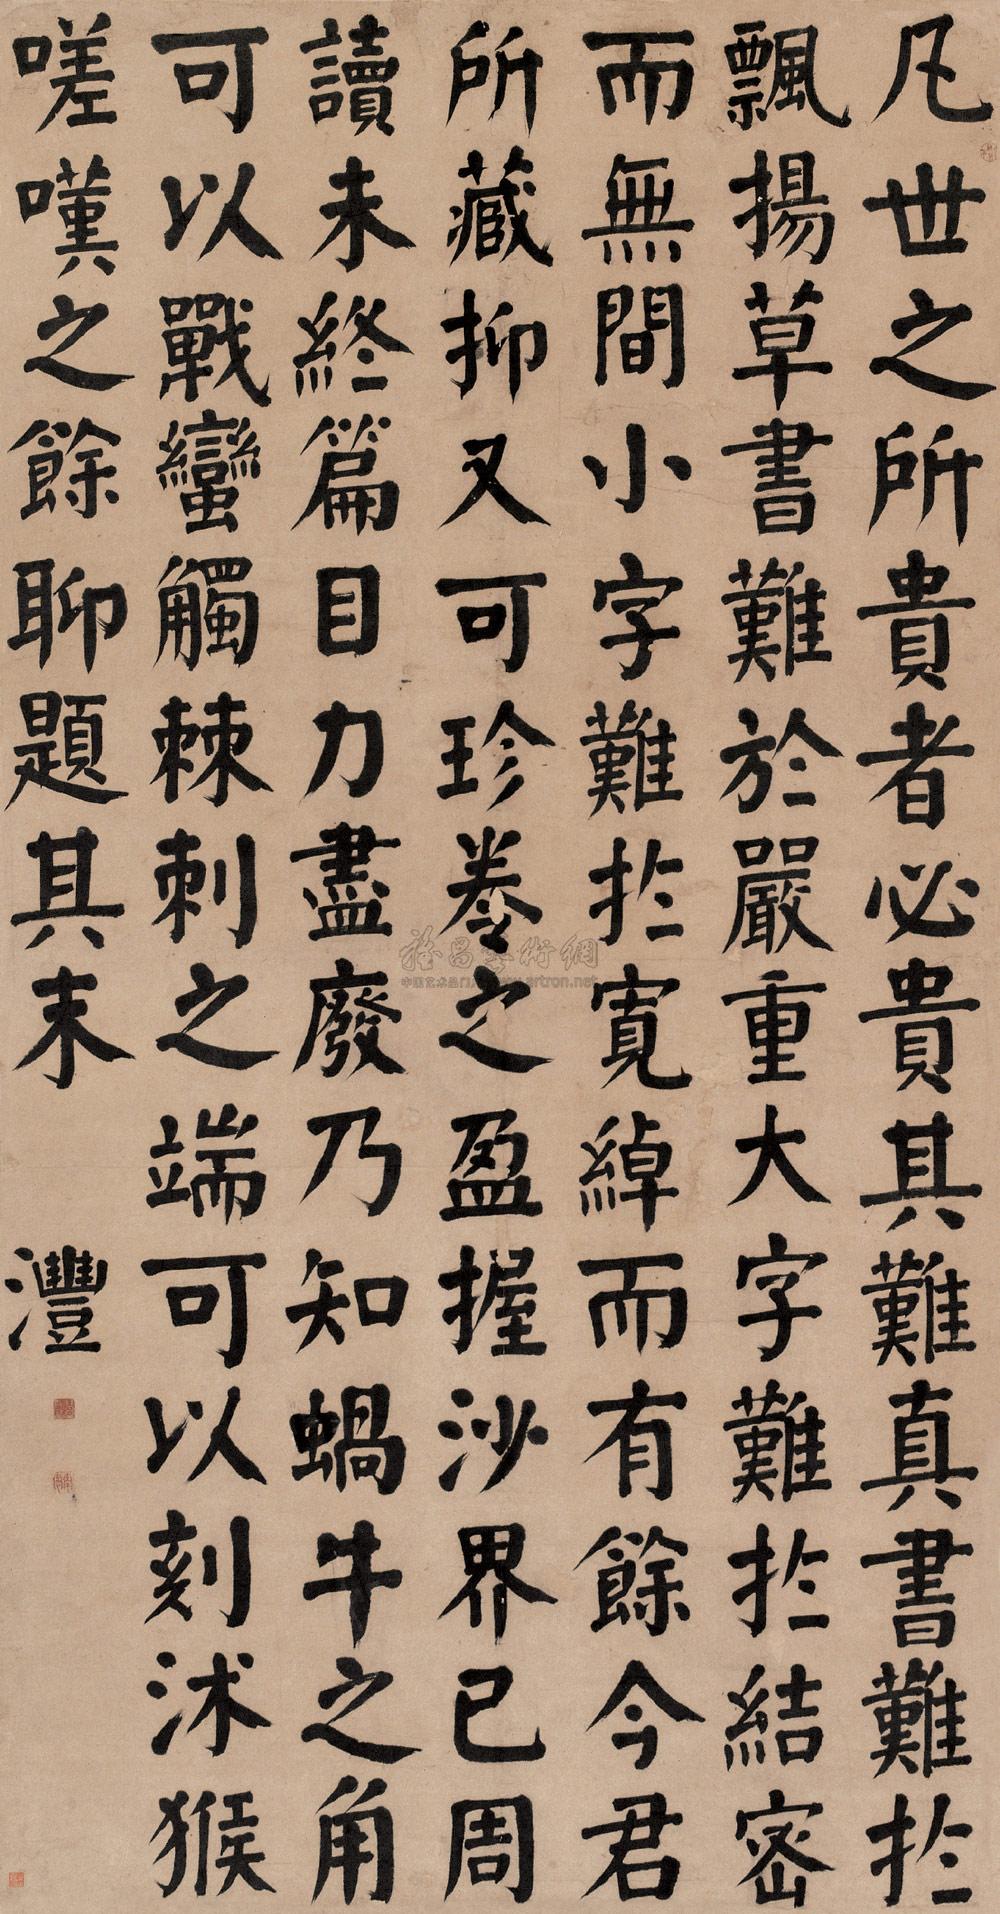 凡世之所貴者必貴其難真書難於
飄揚草書難於嚴重大字難於結密
而無間小字難於寬綽而有餘今君
所藏抑又可珍卷之盈握沙界已周
讀未終篇目力盡廢乃知蝸牛之角
可以戰蠻觸棘刺之端可以刻沭猴
嗟嘆之餘聊題其末
灃